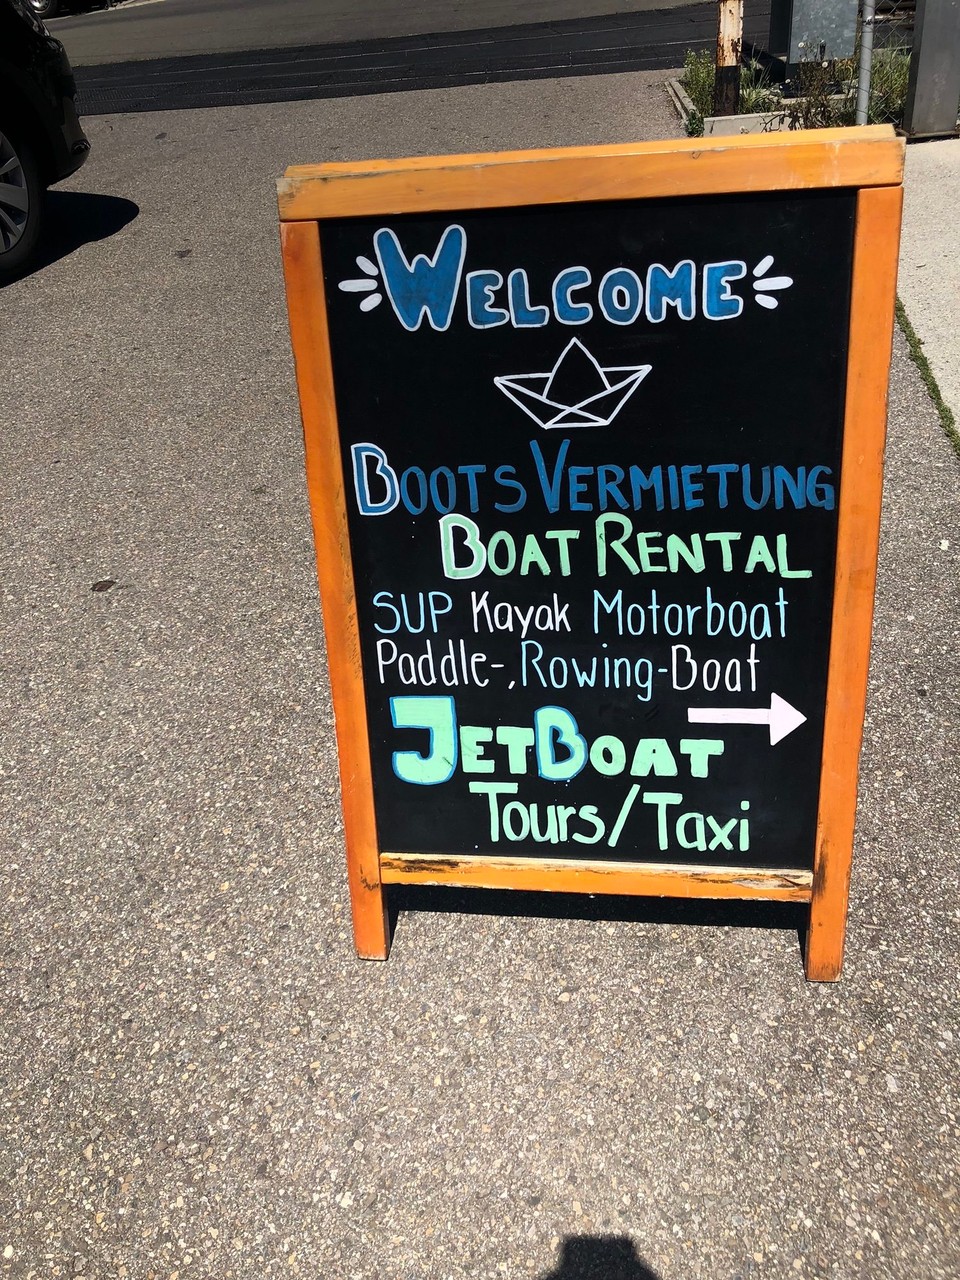 WELCOME
BOOTSVERMIETUNG
BOAT RENTAL
SUP Kayak Motorboat
Paddle-, Rowing-Boat
JETBOAT
Tours/Taxi